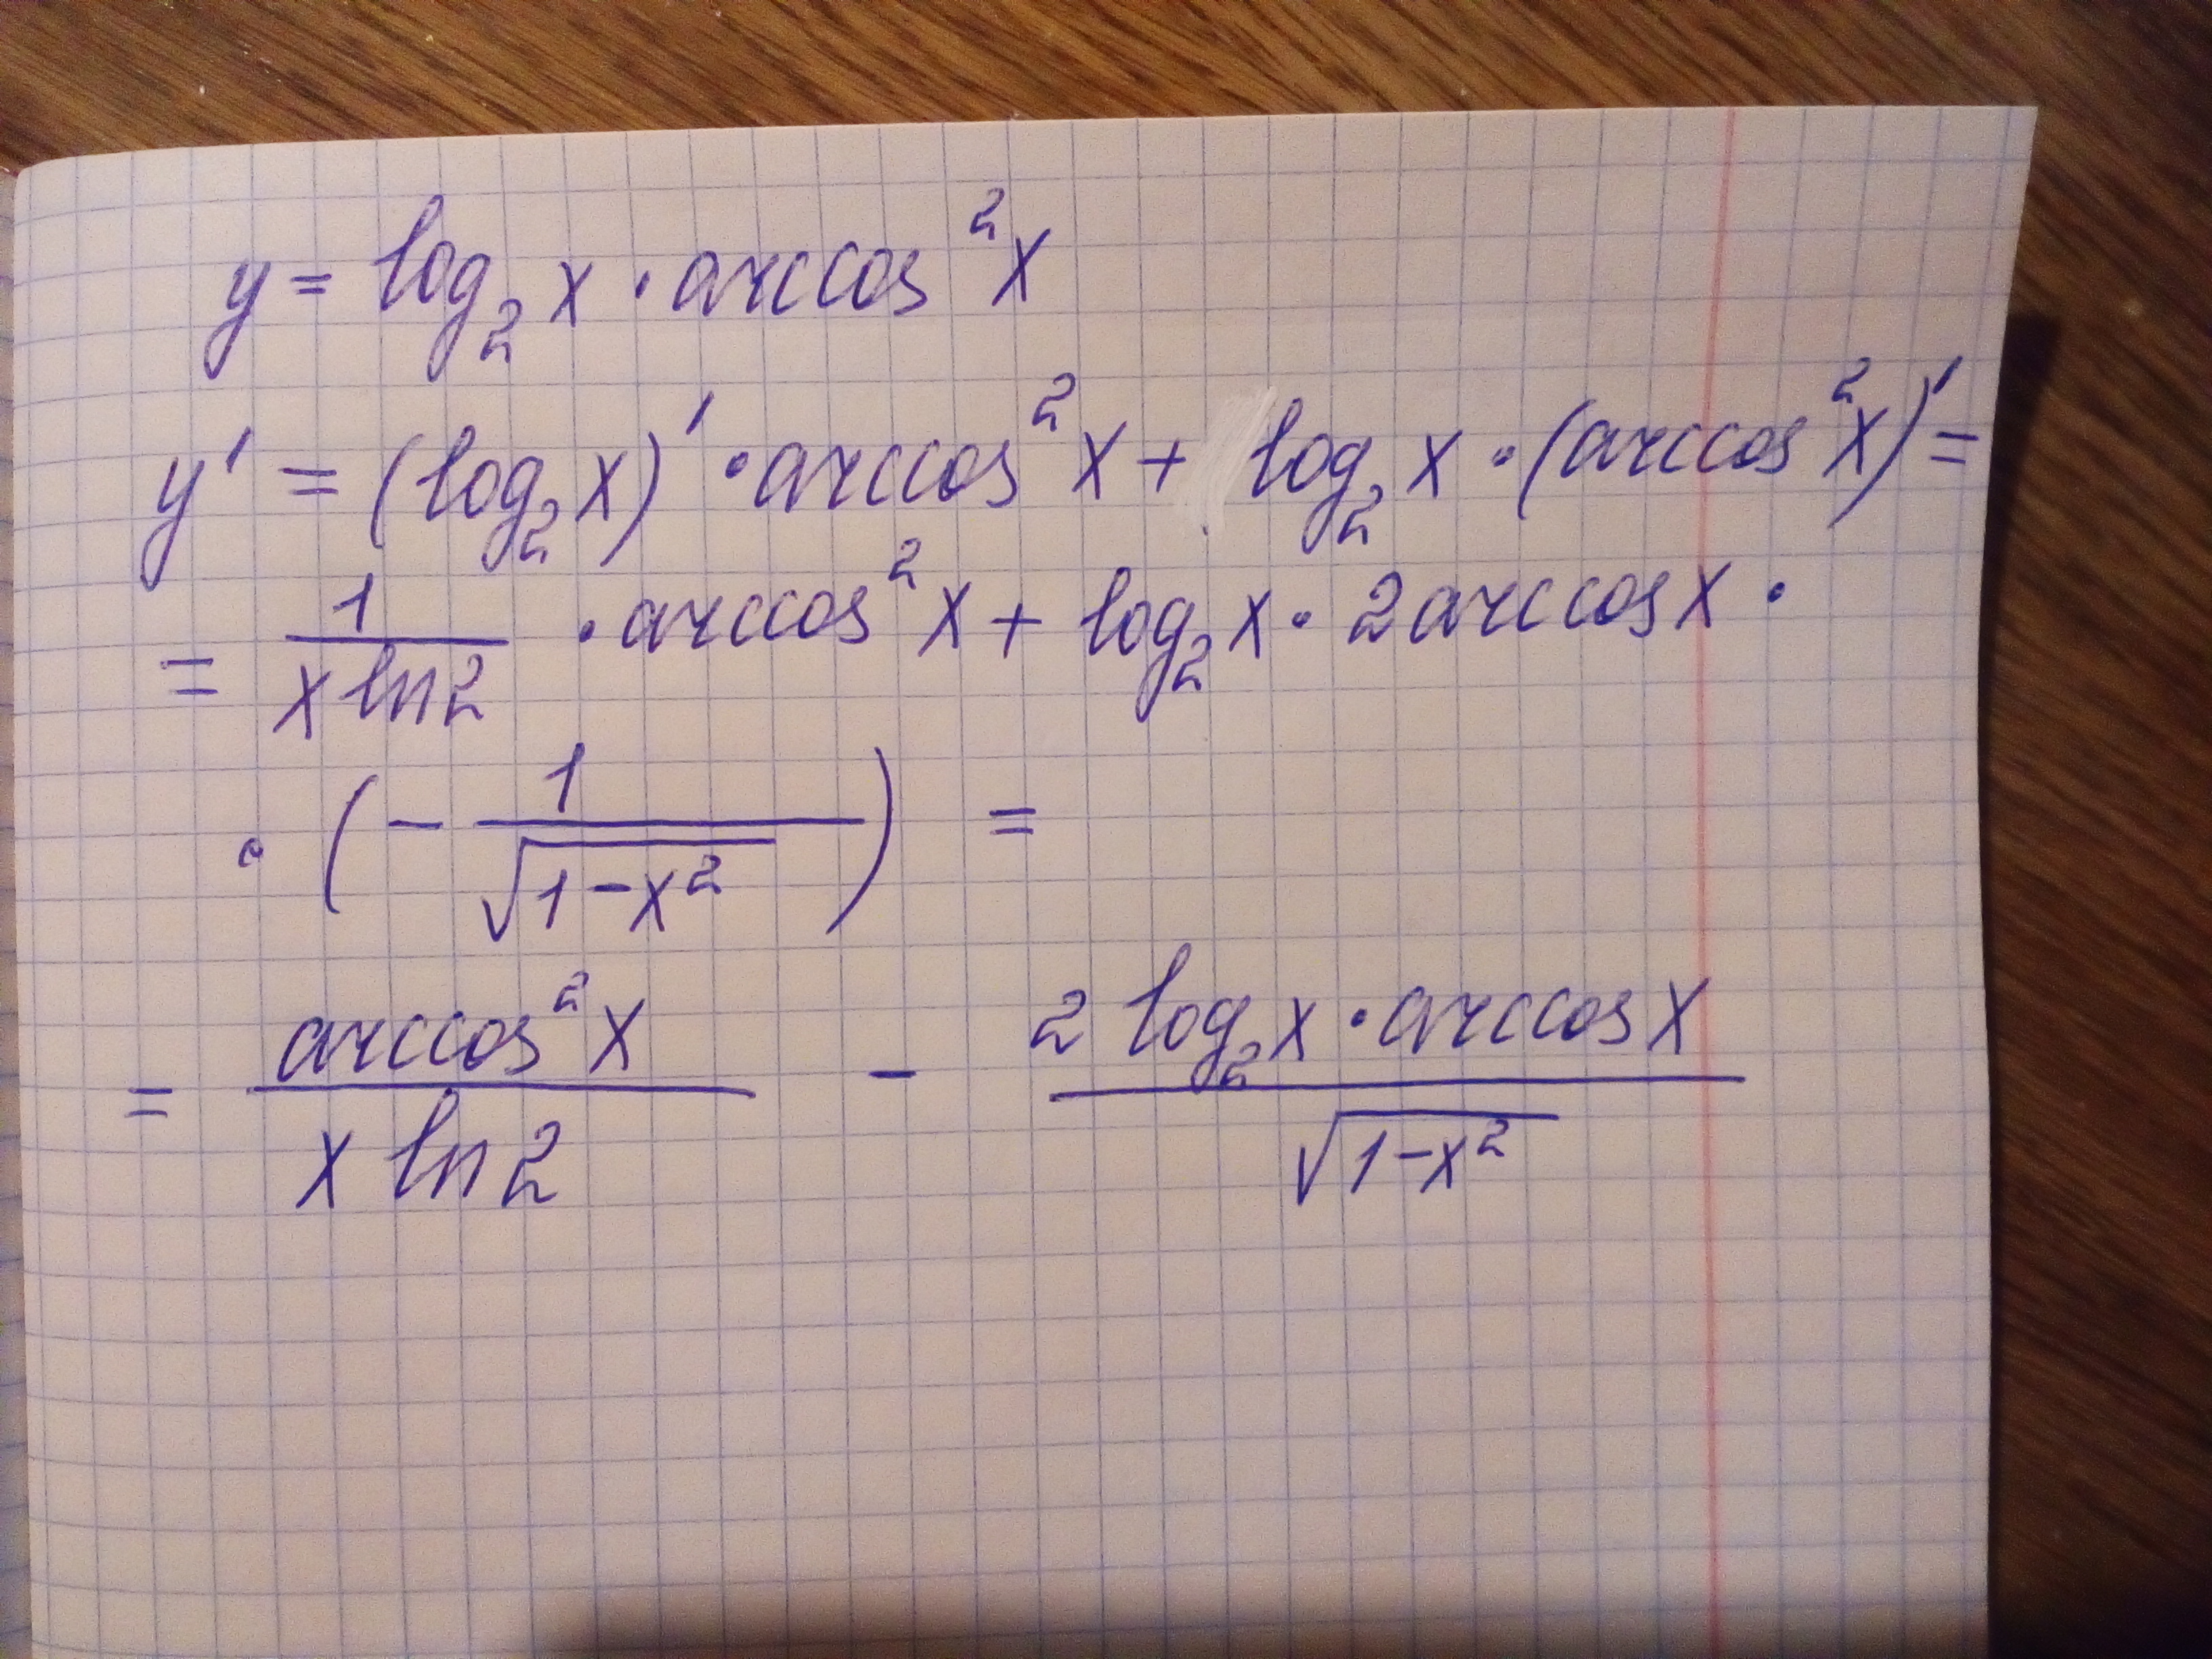 y = log₂ x · arccos² x
y' = (log₂ x)' · arccos² x + log₂ x · (arccos² x)' =
= 1/(x ln 2) · arccos² x + log₂ x · 2 arccos x ·
· (− 1/√(1−x²)) =
= (arccos² x)/(x ln 2) − (2 log₂ x · arccos x)/√(1−x²)